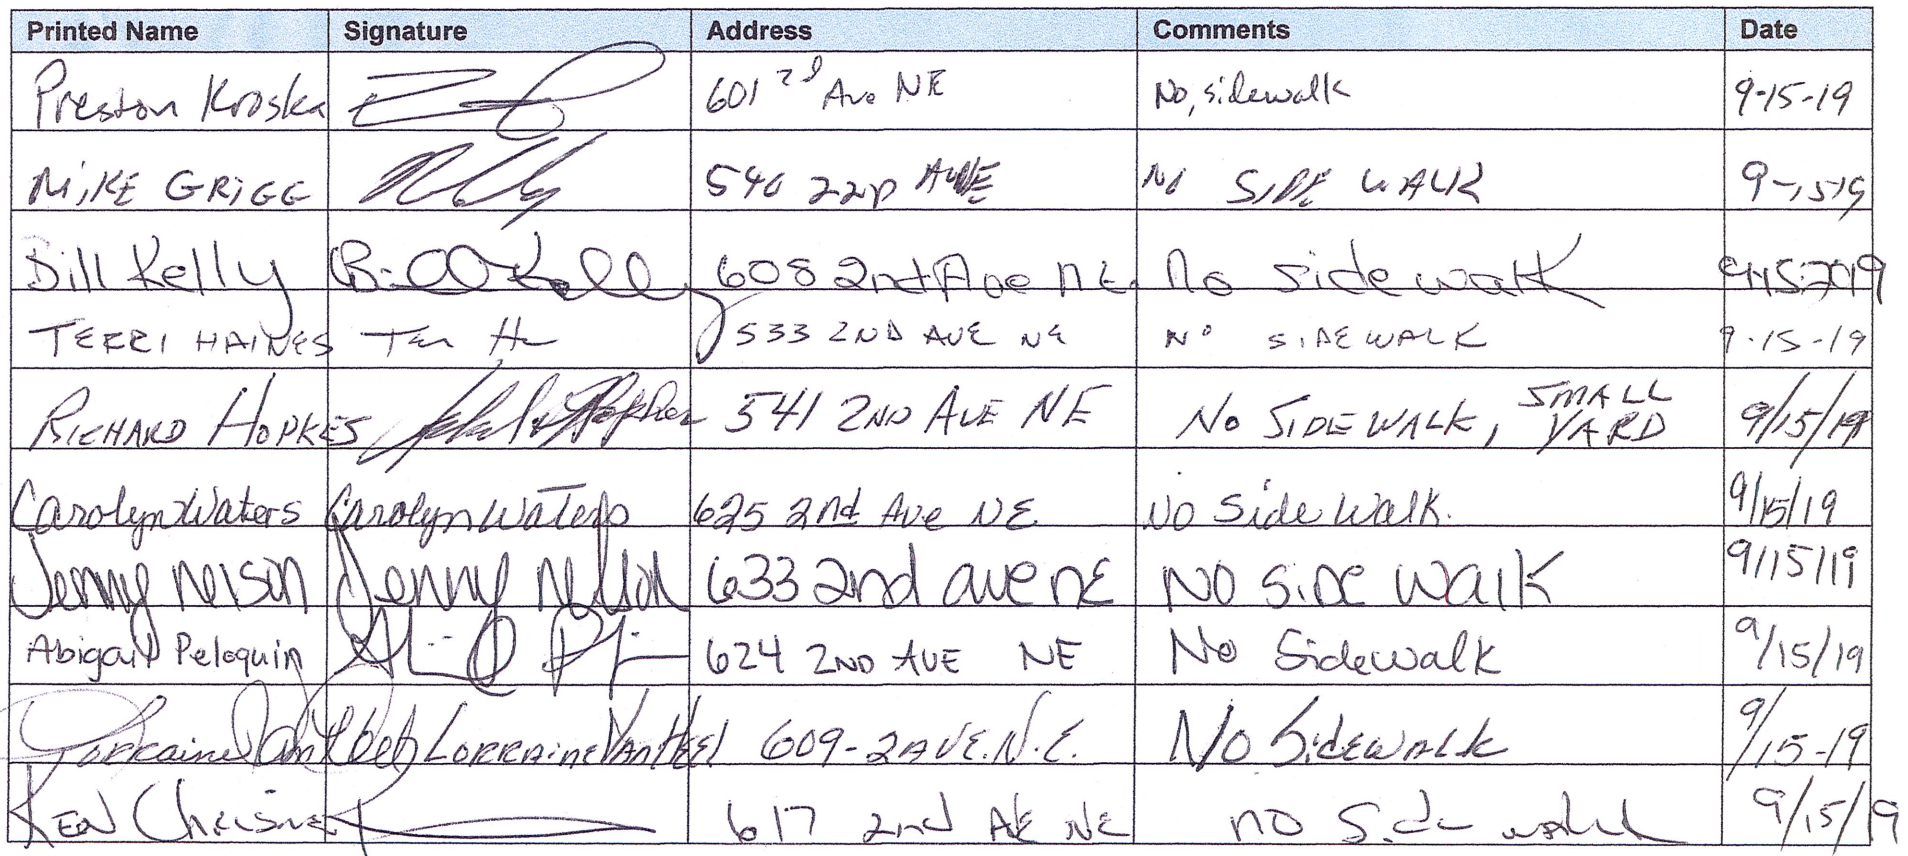 Printed Name Signature Address Comments Date
Preston Kroska 601 2d Ave NE No, sidewalk 9-15-19
MIKE GRIGG 540 22ND AVE NE NO SIDE WALK 9-1519
Bill Kelly Bill Kelly 608 2nd Ave NE No Sidewalk 9-15-2019
TERRI HAINES 533 2ND AVE NE NO SIDEWALK 9-15-19
RICHARD HOPKES 541 2ND AVE NE NO SIDEWALK, SMALL YARD 9/15/19
Carolyn Waters Carolyn Waters 625 2nd Ave NE No Side Walk. 9/15/19
Jenny Nelson Jenny Nelson 633 2nd ave NE NO SiDE WalK 9/15/19
Abigail Peloquin 624 2ND AVE NE No Sidewalk 9/15/19
Lorraine LORRAINE VanHeel 609-2AVE.N.E. No Sidewalk 9/15-19
Ken 617 2nd Ave NE no Sidewalk 9/15/19